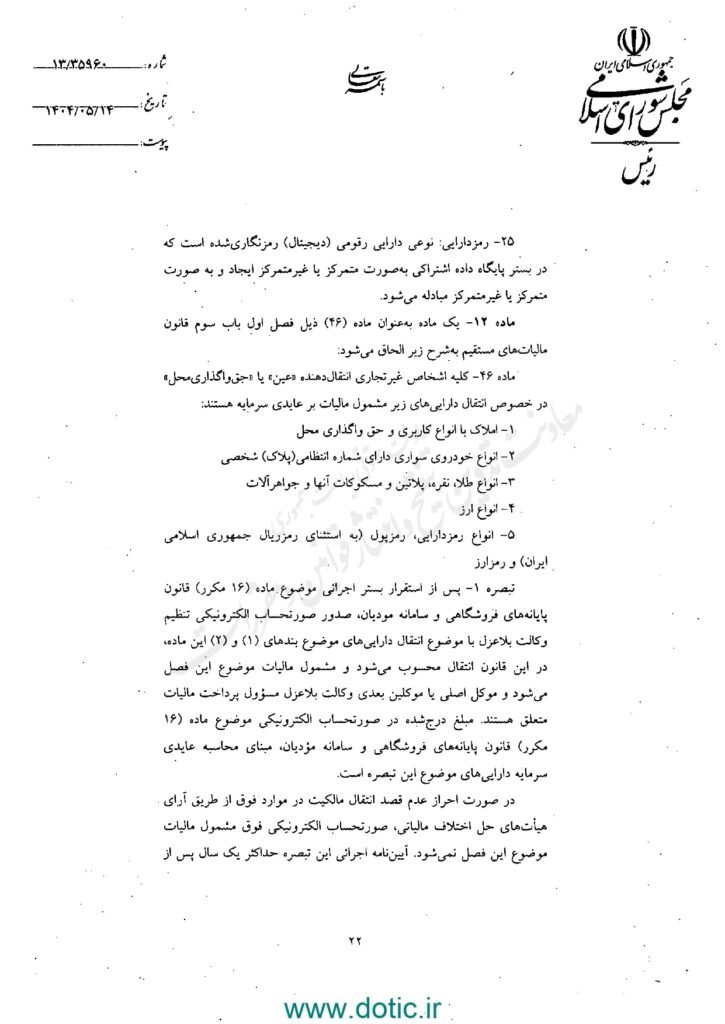 جمهوری اسلامی ایران
مجلس شورای اسلامی
رئیس
باسمه تعالی
شماره: ۱۳/۳۵۹۶۰
تاریخ: ۱۴۰۴/۰۵/۱۴
پیوست:
۲۵- رمزدارایی: نوعی دارایی رقومی (دیجیتال) رمزنگاری‌شده است که
در بستر پایگاه داده اشتراکی به‌صورت متمرکز یا غیرمتمرکز ایجاد و به صورت
متمرکز یا غیرمتمرکز مبادله می‌شود.
ماده ۱۲- یک ماده به‌عنوان ماده (۴۶) ذیل فصل اول باب سوم قانون
مالیات‌های مستقیم به‌شرح زیر الحاق می‌شود:
ماده ۴۶- کلیه اشخاص غیرتجاری انتقال‌دهنده «عین» یا «حق‌واگذاری‌محل»
در خصوص انتقال دارایی‌های زیر مشمول مالیات بر عایدی سرمایه هستند:
۱- املاک با انواع کاربری و حق واگذاری محل
۲- انواع خودروی سواری دارای شماره انتظامی(پلاک) شخصی
۳- انواع طلا، نقره، پلاتین و مسکوکات آنها و جواهرآلات
۴- انواع ارز
۵- انواع رمزدارایی، رمزپول (به استثنای رمزریال جمهوری اسلامی
ایران) و رمزارز
تبصره ۱- پس از استقرار بستر اجرائی موضوع ماده (۱۶ مکرر) قانون
پایانه‌های فروشگاهی و سامانه مودیان، صدور صورتحساب الکترونیکی تنظیم
وکالت بلاعزل با موضوع انتقال دارایی‌های موضوع بندهای (۱) و (۲) این ماده،
در این قانون انتقال محسوب می‌شود و مشمول مالیات موضوع این فصل
می‌شود و موکل اصلی یا موکلین بعدی وکالت بلاعزل مسؤول پرداخت مالیات
متعلق هستند. مبلغ درج‌شده در صورتحساب الکترونیکی موضوع ماده (۱۶
مکرر) قانون پایانه‌های فروشگاهی و سامانه مؤدیان، مبنای محاسبه عایدی
سرمایه دارایی‌های موضوع این تبصره است.
در صورت احراز عدم قصد انتقال مالکیت در موارد فوق از طریق آرای
هیأت‌های حل اختلاف مالیاتی، صورتحساب الکترونیکی فوق مشمول مالیات
موضوع این فصل نمی‌شود. آیین‌نامه اجرائی این تبصره حداکثر یک سال پس از
۲۲
www.dotic.ir